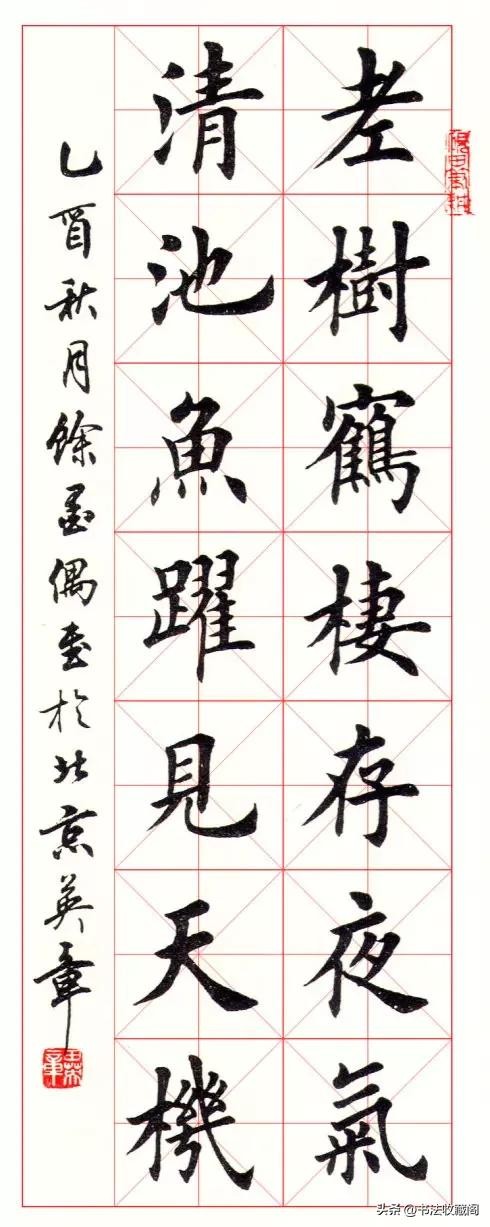 老樹鶴棲存夜氣
清池魚躍見天機
乙酉秋月餘墨偶書於北京英章
田英章
头条 @书法收藏阁